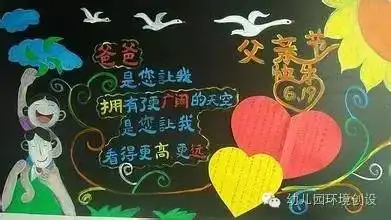 爸爸
是您让我
拥有了更广阔的天空
是您让我
看得更高更远
父亲节
快乐
6.19
幼儿园环境创设